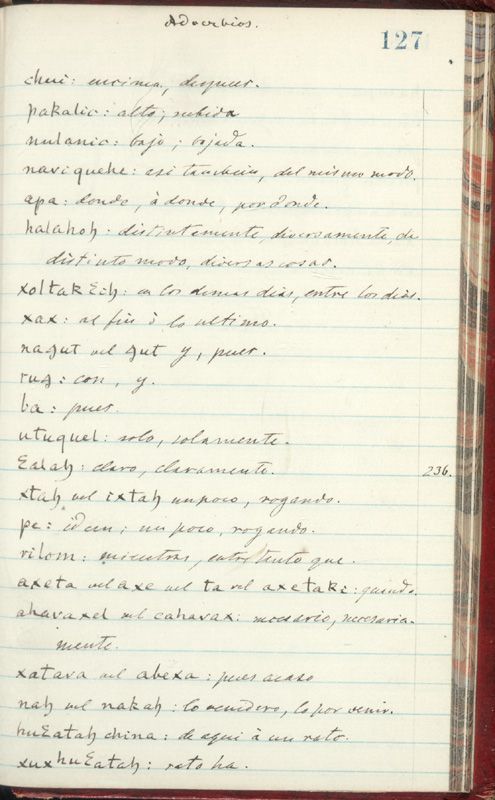 Adverbios.
127
chui: encima, despues.
pakalic: alto; subida
mulanic: bajo; bajada.
naviquehe: asi tambien, del mismo modo.
apa: donde, à donde, por donde.
halahoh: distintamente, diversamente, de
distinto modo, diversas cosas.
xoltakƐih: en los demas dias, entre los dias.
xax: al fin ò lo ultimo.
naꜫut vel ꜫut y, pues.
ruꜫ: con, y.
ba: pues.
utuquel: solo, solamente.
Ɛalah: claro, claramente.
236.
xtah vel ixtah un poco, rogando.
pe: idem; un poco, rogando.
rilom: mientras, entre tanto que.
axeta vel axe vel ta vel axetak: quando.
ahavaxel vel cahavax: necesario, necesaria-
mente.
xatava vel abexa: pues acaso
nah vel nakah: lo venidero, lo por venir.
huƐatah china: de aqui à un rato.
xux huƐatah: rato ha.